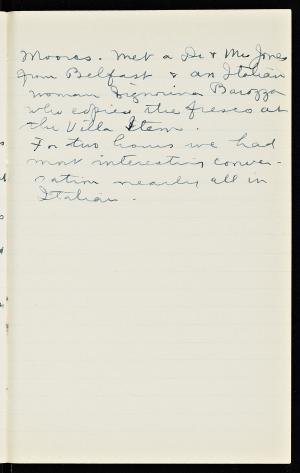 Moores. Met a Dr & Mrs Jones
from Belfast & an Italian
woman Signorina Barozza
who copied the frescs at
the Villa Item.
For two hours we had
most interesting conver-
sation nearly all in
Italian.